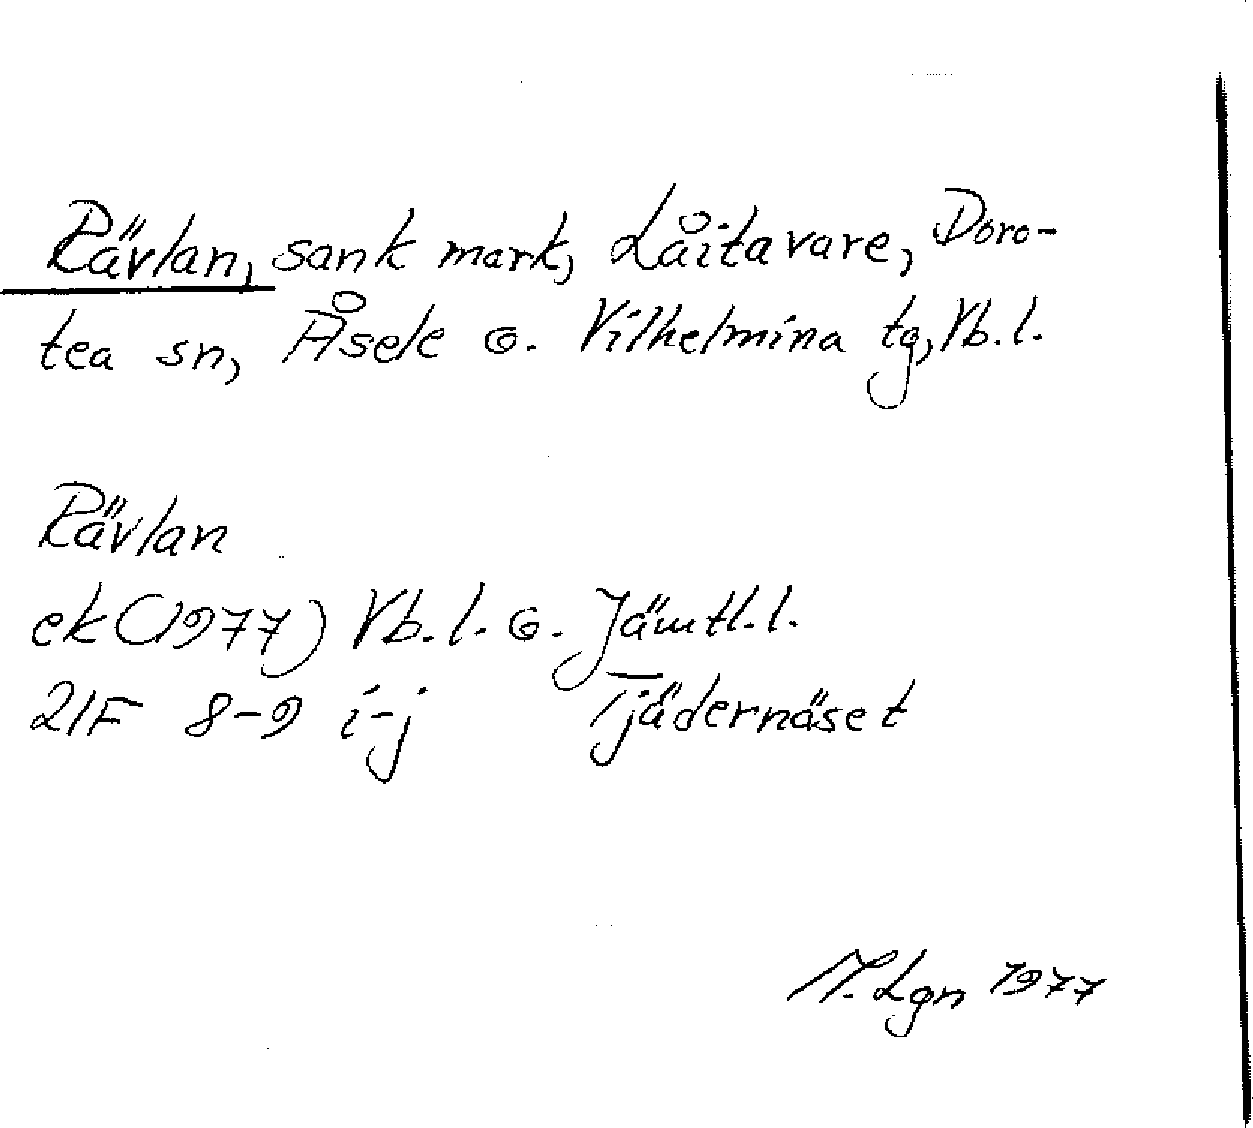 Rävlan, sank mark, Låitavare, Doro-
tea sn, Åsele o. Vilhelmina tg, Vb.l.
Rävlan
ek (1977) Vb.l. o. Jämtl.l.
21F 8-9 i-j Tjädernäset
M. Lgn 1977